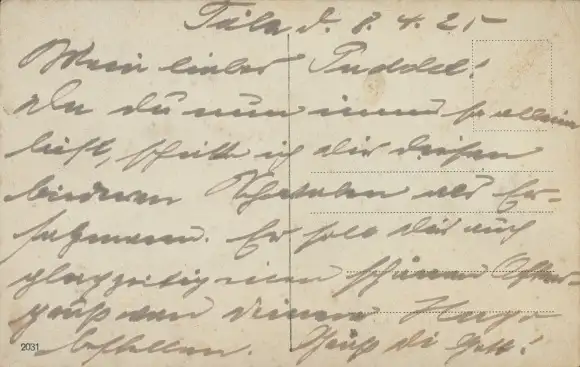 Tölz d. 8.4.25
Mein lieber Puddel!
Da du nun immer so allein
bist, schicke ich dir diesen
biederen als Er-
satzmann. Er soll dir auch
gleichzeitig einen schönen Oster-
gruß von deinem Hugo
bestellen. Grüß di Gott!
2031